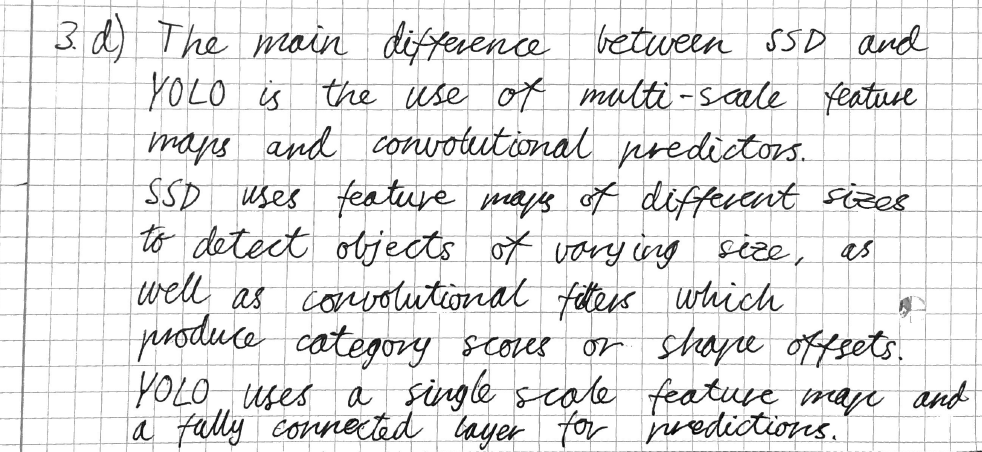 3. d) The main difference between SSD and
YOLO is the use of multi-scale feature
maps and convolutional predictors.
SSD uses feature maps of different sizes
to detect objects of varying size, as
well as convolutional filters which
produce category scores or shape offsets.
YOLO uses a single scale feature map and
a fully connected layer for predictions.